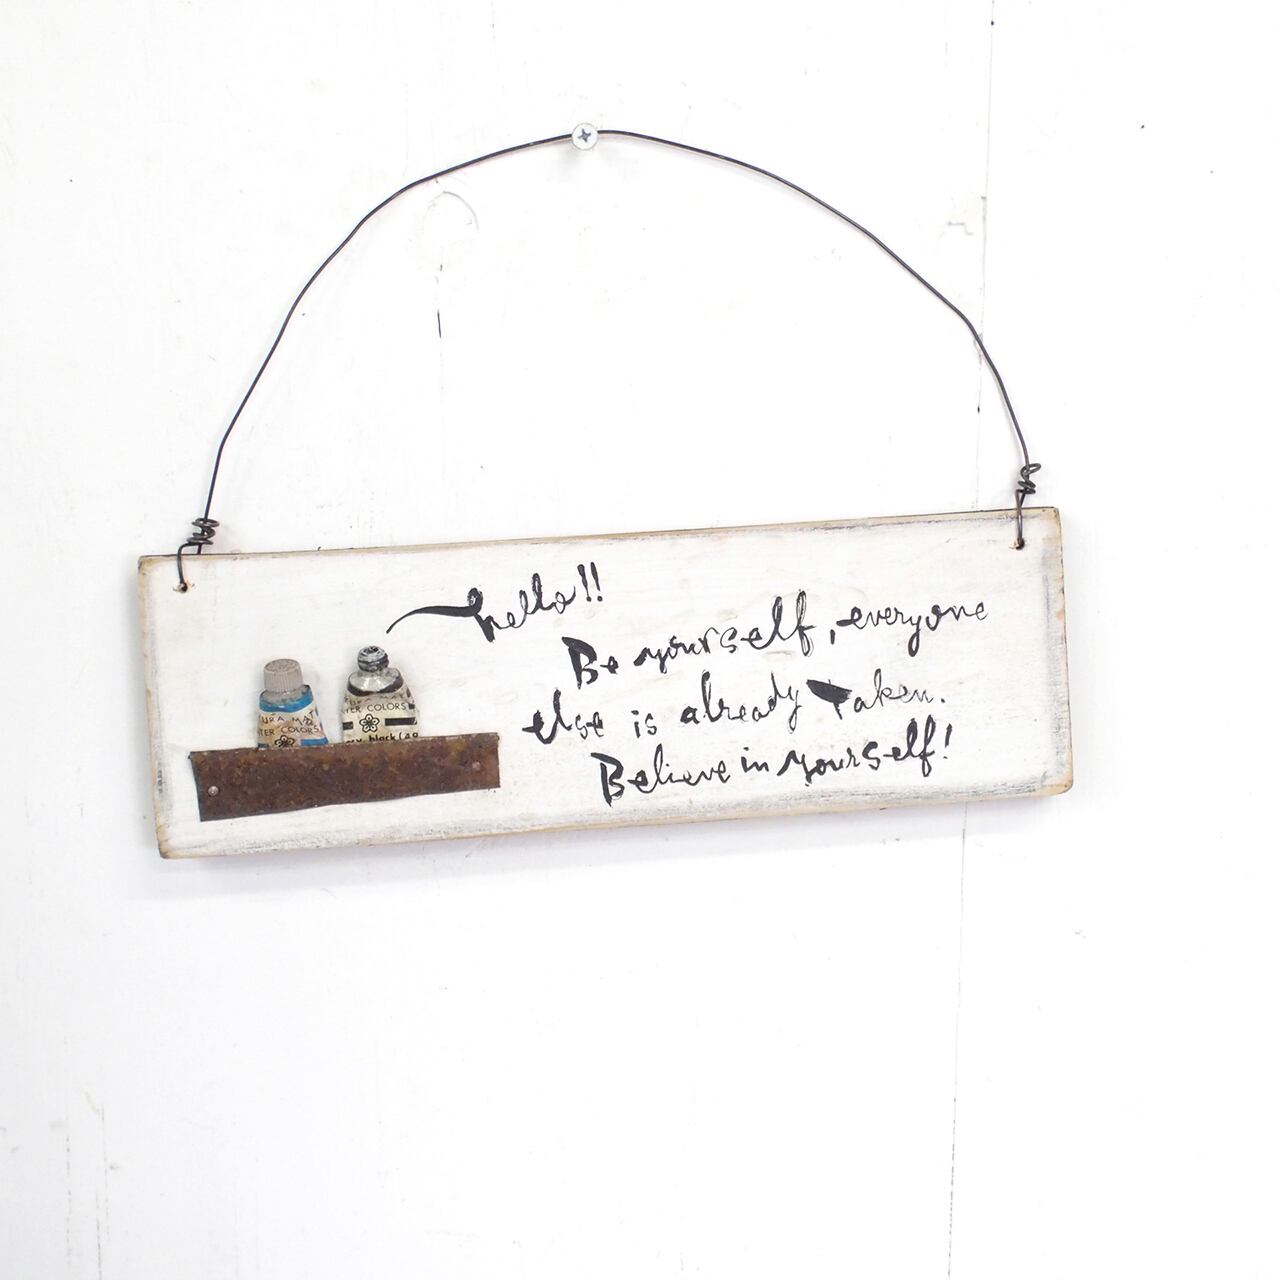 hello!!
Be yourself, everyone
else is already taken.
Believe in yourself!
URA M
TER COLORS
TER COLORS
ry black (ao